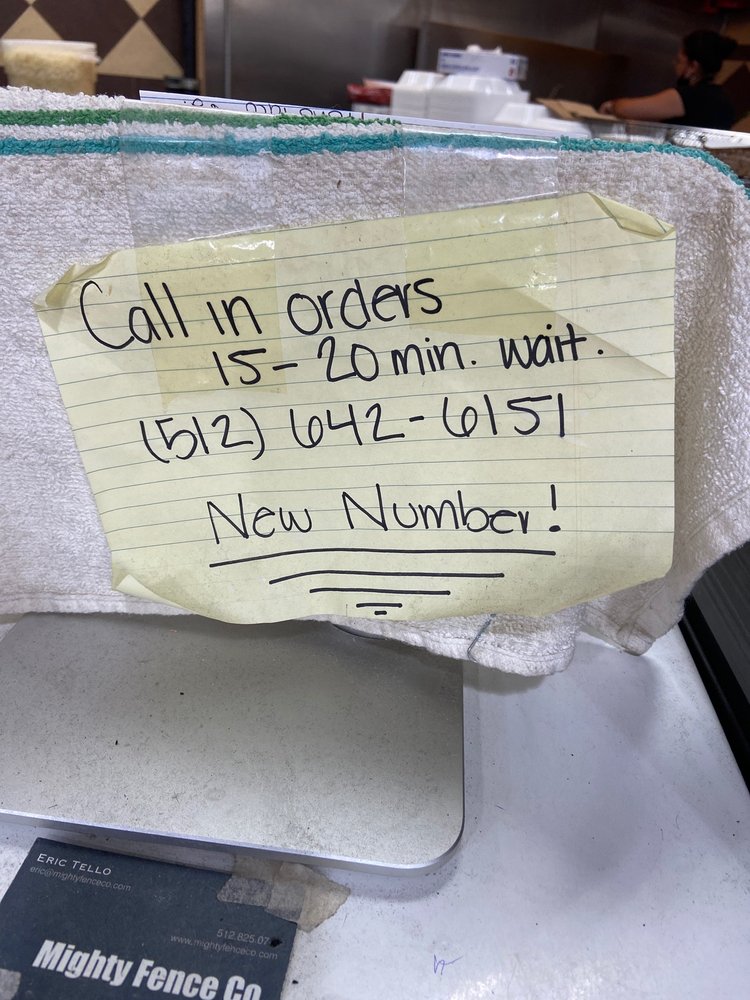 Call in orders
15-20 min. wait.
(512) 642-6151
New Number!
ERIC TELLO
eric@mightyfenceco.com
512.825.07
www.mightyfenceco.com
Mighty Fence Co